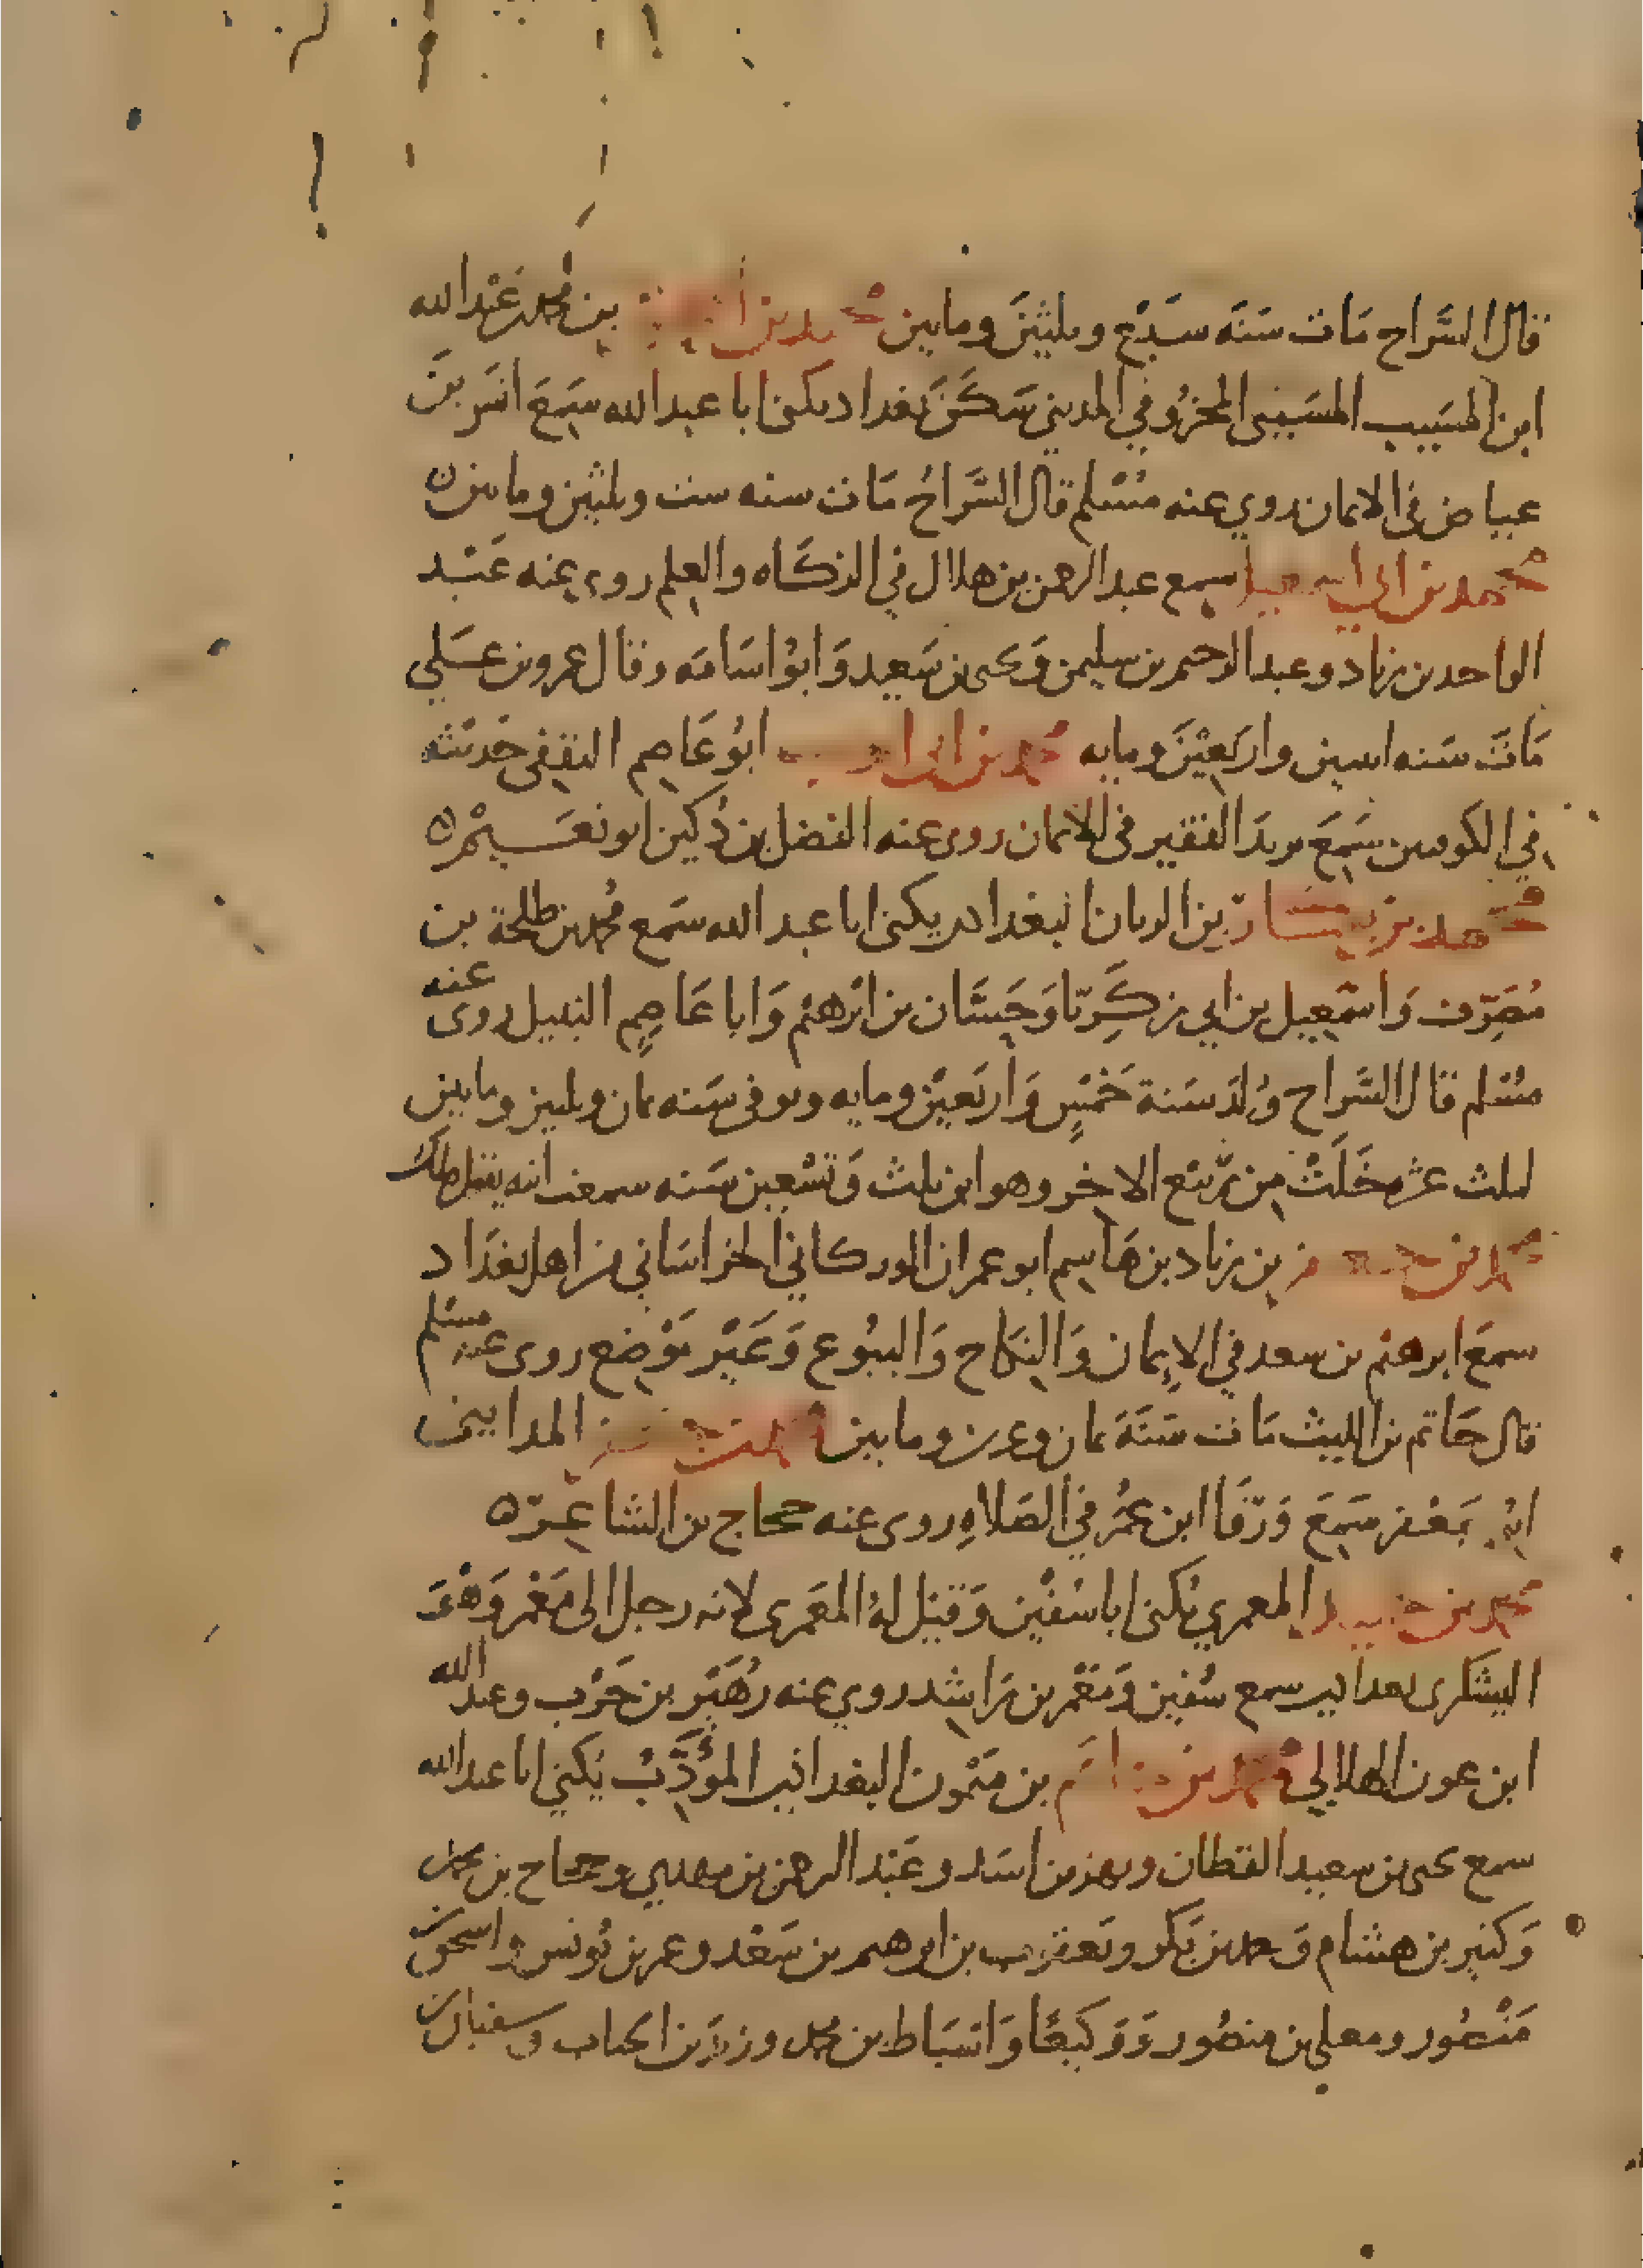 قال السراج مات سنة سبع وثلثين ومايتين محمد بن اسحق بن محمد بن عبد الله
ابن المسيب المسيبي المخزومي المديني سكن بغداد يكنى ابا عبد الله سمع انس بن
عياض في الايمان روي عنه مسلم قال السراج مات سنه ست وثلثين ومايتين ه
محمد بن ابي اسمعيل سمع عبد الرحمن بن هلال في الزكاه والعلم روى عنه عبد
الواحد بن زياد وعبد الرحيم بن سليمن ويحيى بن سعيد وابو اسامه وقال عمرو بن علي
مات سنه اثنين واربعين ومايه محمد بن ابي ايوب ابو عاصم الثقفي حديثه
في الكوفيين سمع يزيد الفقير في الايمان روى عنه الفضل بن دكين ابو نعيم ه
محمد بن بكار بن الريان البغدادي يكنى ابا عبد الله سمع محمد بن طلحة بن
مصرف واسمعيل بن ابي زكريا وحسان بن ابرهيم وابا عاصم النبيل روى عنه
مسلم قال السراج ولد سنة خمس واربعين ومايه وتوفي سنه ثمان وثلثين ومايتين
لثلث عشره خلت من ربيع الاخر وهو ابن ثلث وتسعين سنه سمعت ابنه يقول ذلك
محمد بن جعفر بن زياد بن هاشم ابو عمران الوركاني الخراساني من اهل بغداد
سمع ابرهيم بن سعد في الإيمان والنكاح والبيوع وغير موضع روى عنه مسلم
قال حاتم بن الليث مات سنة ثمان وعشرين ومايتين محمد بن جعفر المدايني
ابو جعفر سمع ورقا ابن عمر في الصلاه روى عنه حجاج بن الشاعر ه
محمد بن حميد المعمري يكنى ابا سفين وقيل له المعمري لانه رحل الى معمر وهو
اليشكري بغدادي سمع سفين ومعمر بن راشد روي عنه زهير بن حرب وعبد الله
ابن عون الهلالي محمد بن حاتم بن ميمون البغدادي المؤدب يكني ابا عبد الله
سمع يحيى بن سعيد القطان وبهز بن اسد وعبد الرحمن بن مهدي وحجاج بن محمد
وكثير بن هشام ومحمد بن بكر ويعقوب بن ابرهيم بن سعد وعمر بن يونس واسحق بن
منصور ومعلى بن منصور ووكيعا واسباط بن محمد وزيد بن الحباب وسفيان بن